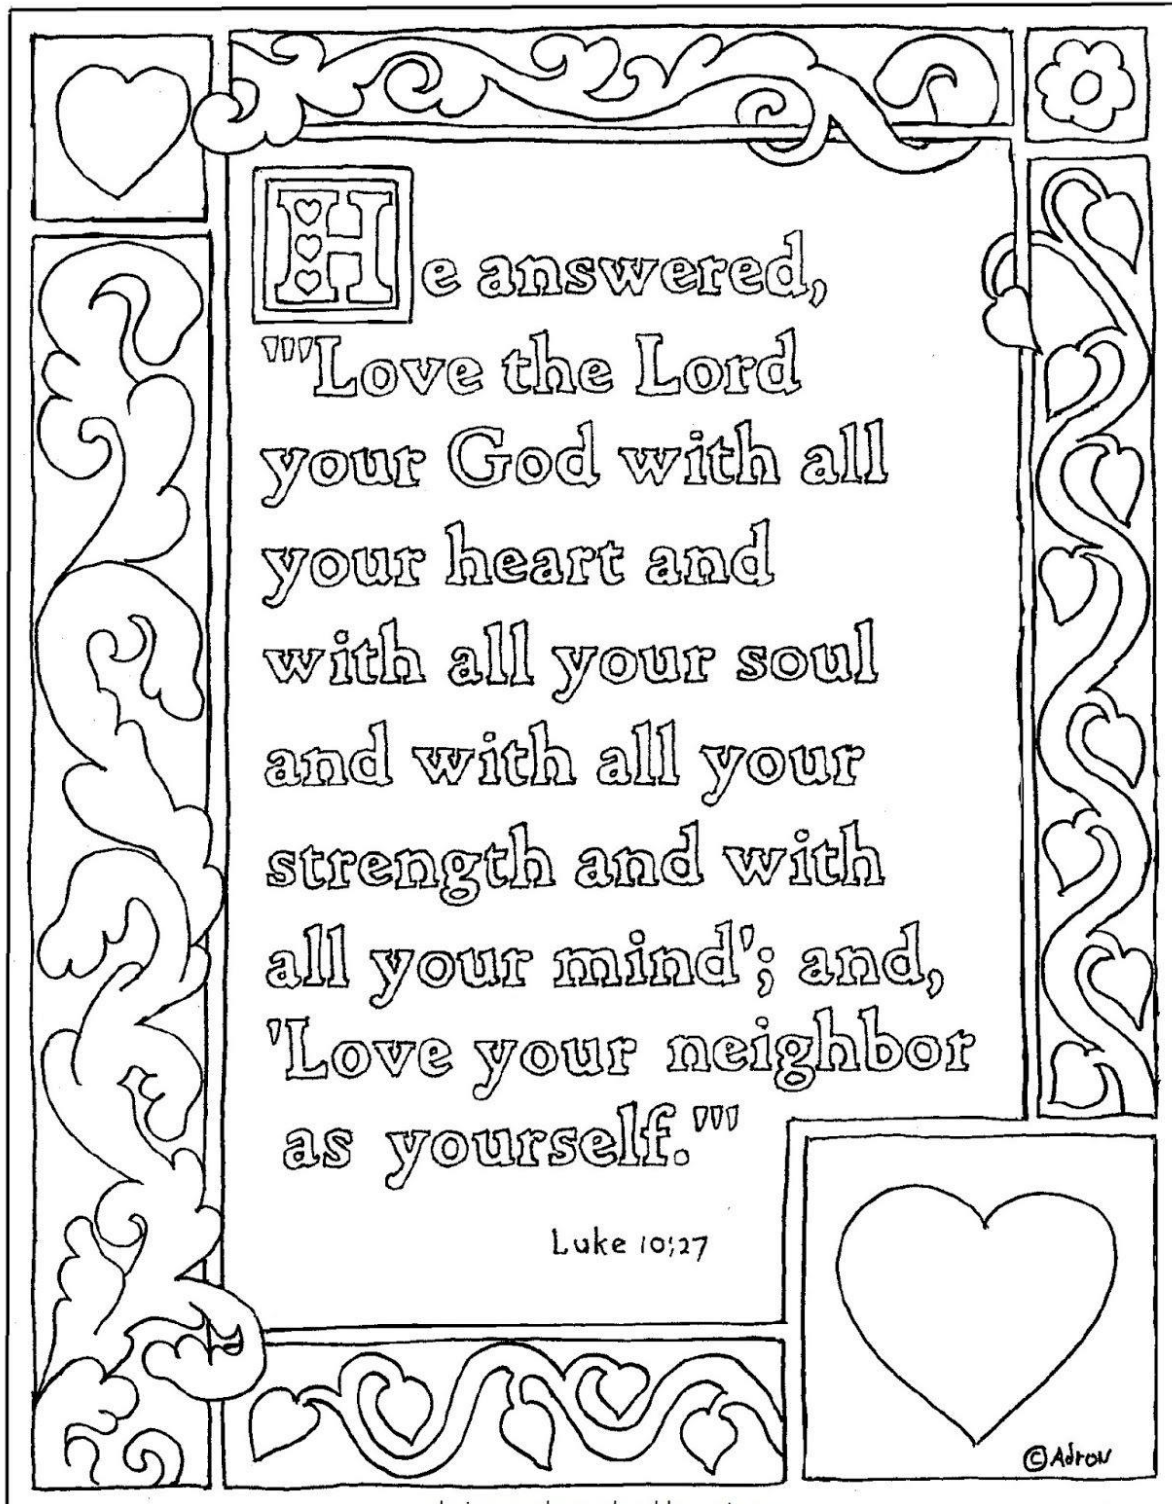 He answered,
"'Love the Lord
your God with all
your heart and
with all your soul
and with all your
strength and with
all your mind'; and,
'Love your neighbor
as yourself.'"
Luke 10:27
© Adron